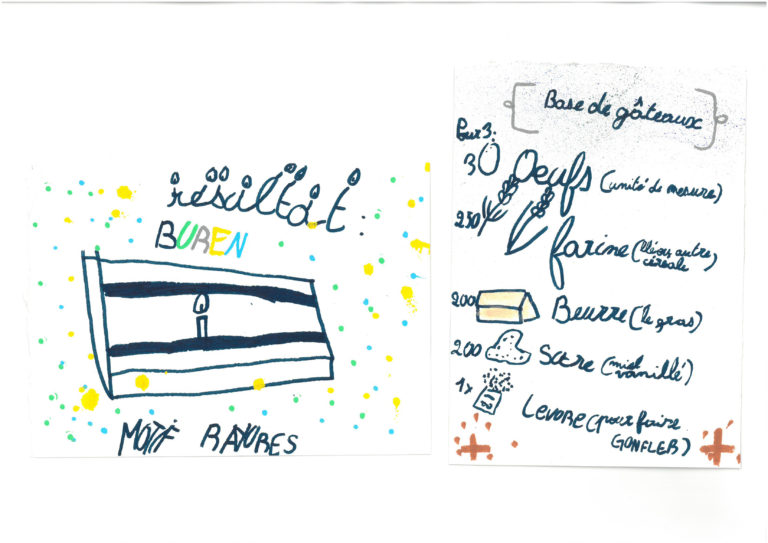 résultat :
BUREN
MOTIF RAYURES
Base de gâteaux
Pour 3 :
3 Oeufs (unité de mesure)
250 farine (blé ou autre
céréale)
200 Beurre (le gras)
200 Sucre (miel
vanillé)
1x LEVURE (pour faire
GONFLER)